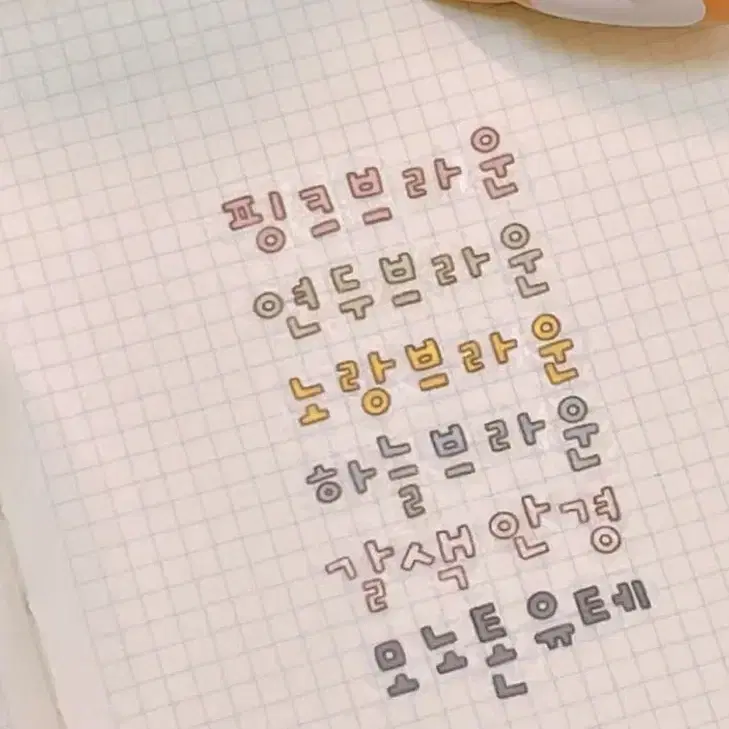 핑크브라운
연두브라운
노랑브라운
하늘브라운
갈색안경
모노톤유테